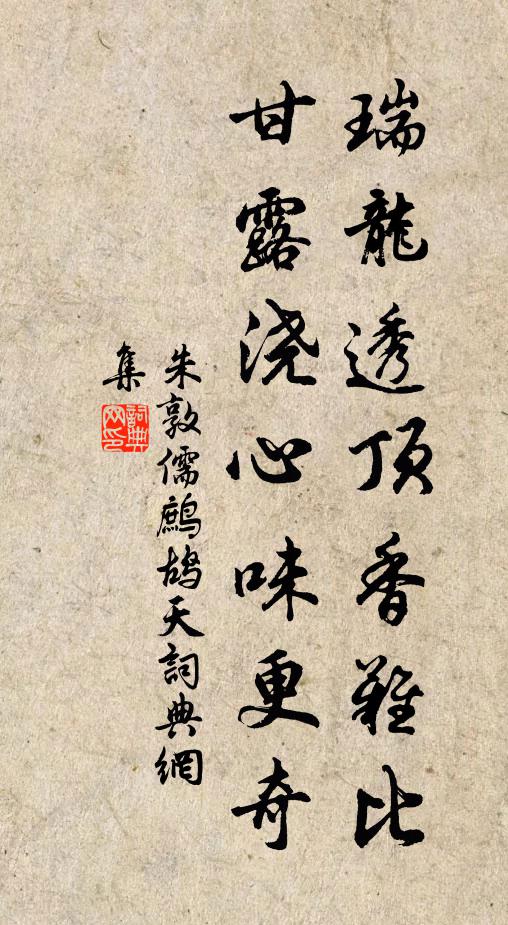 瑞龍透頂香難比
甘露浇心味更奇
朱敦儒鷓鴣天詞典網
集
詞典
网印